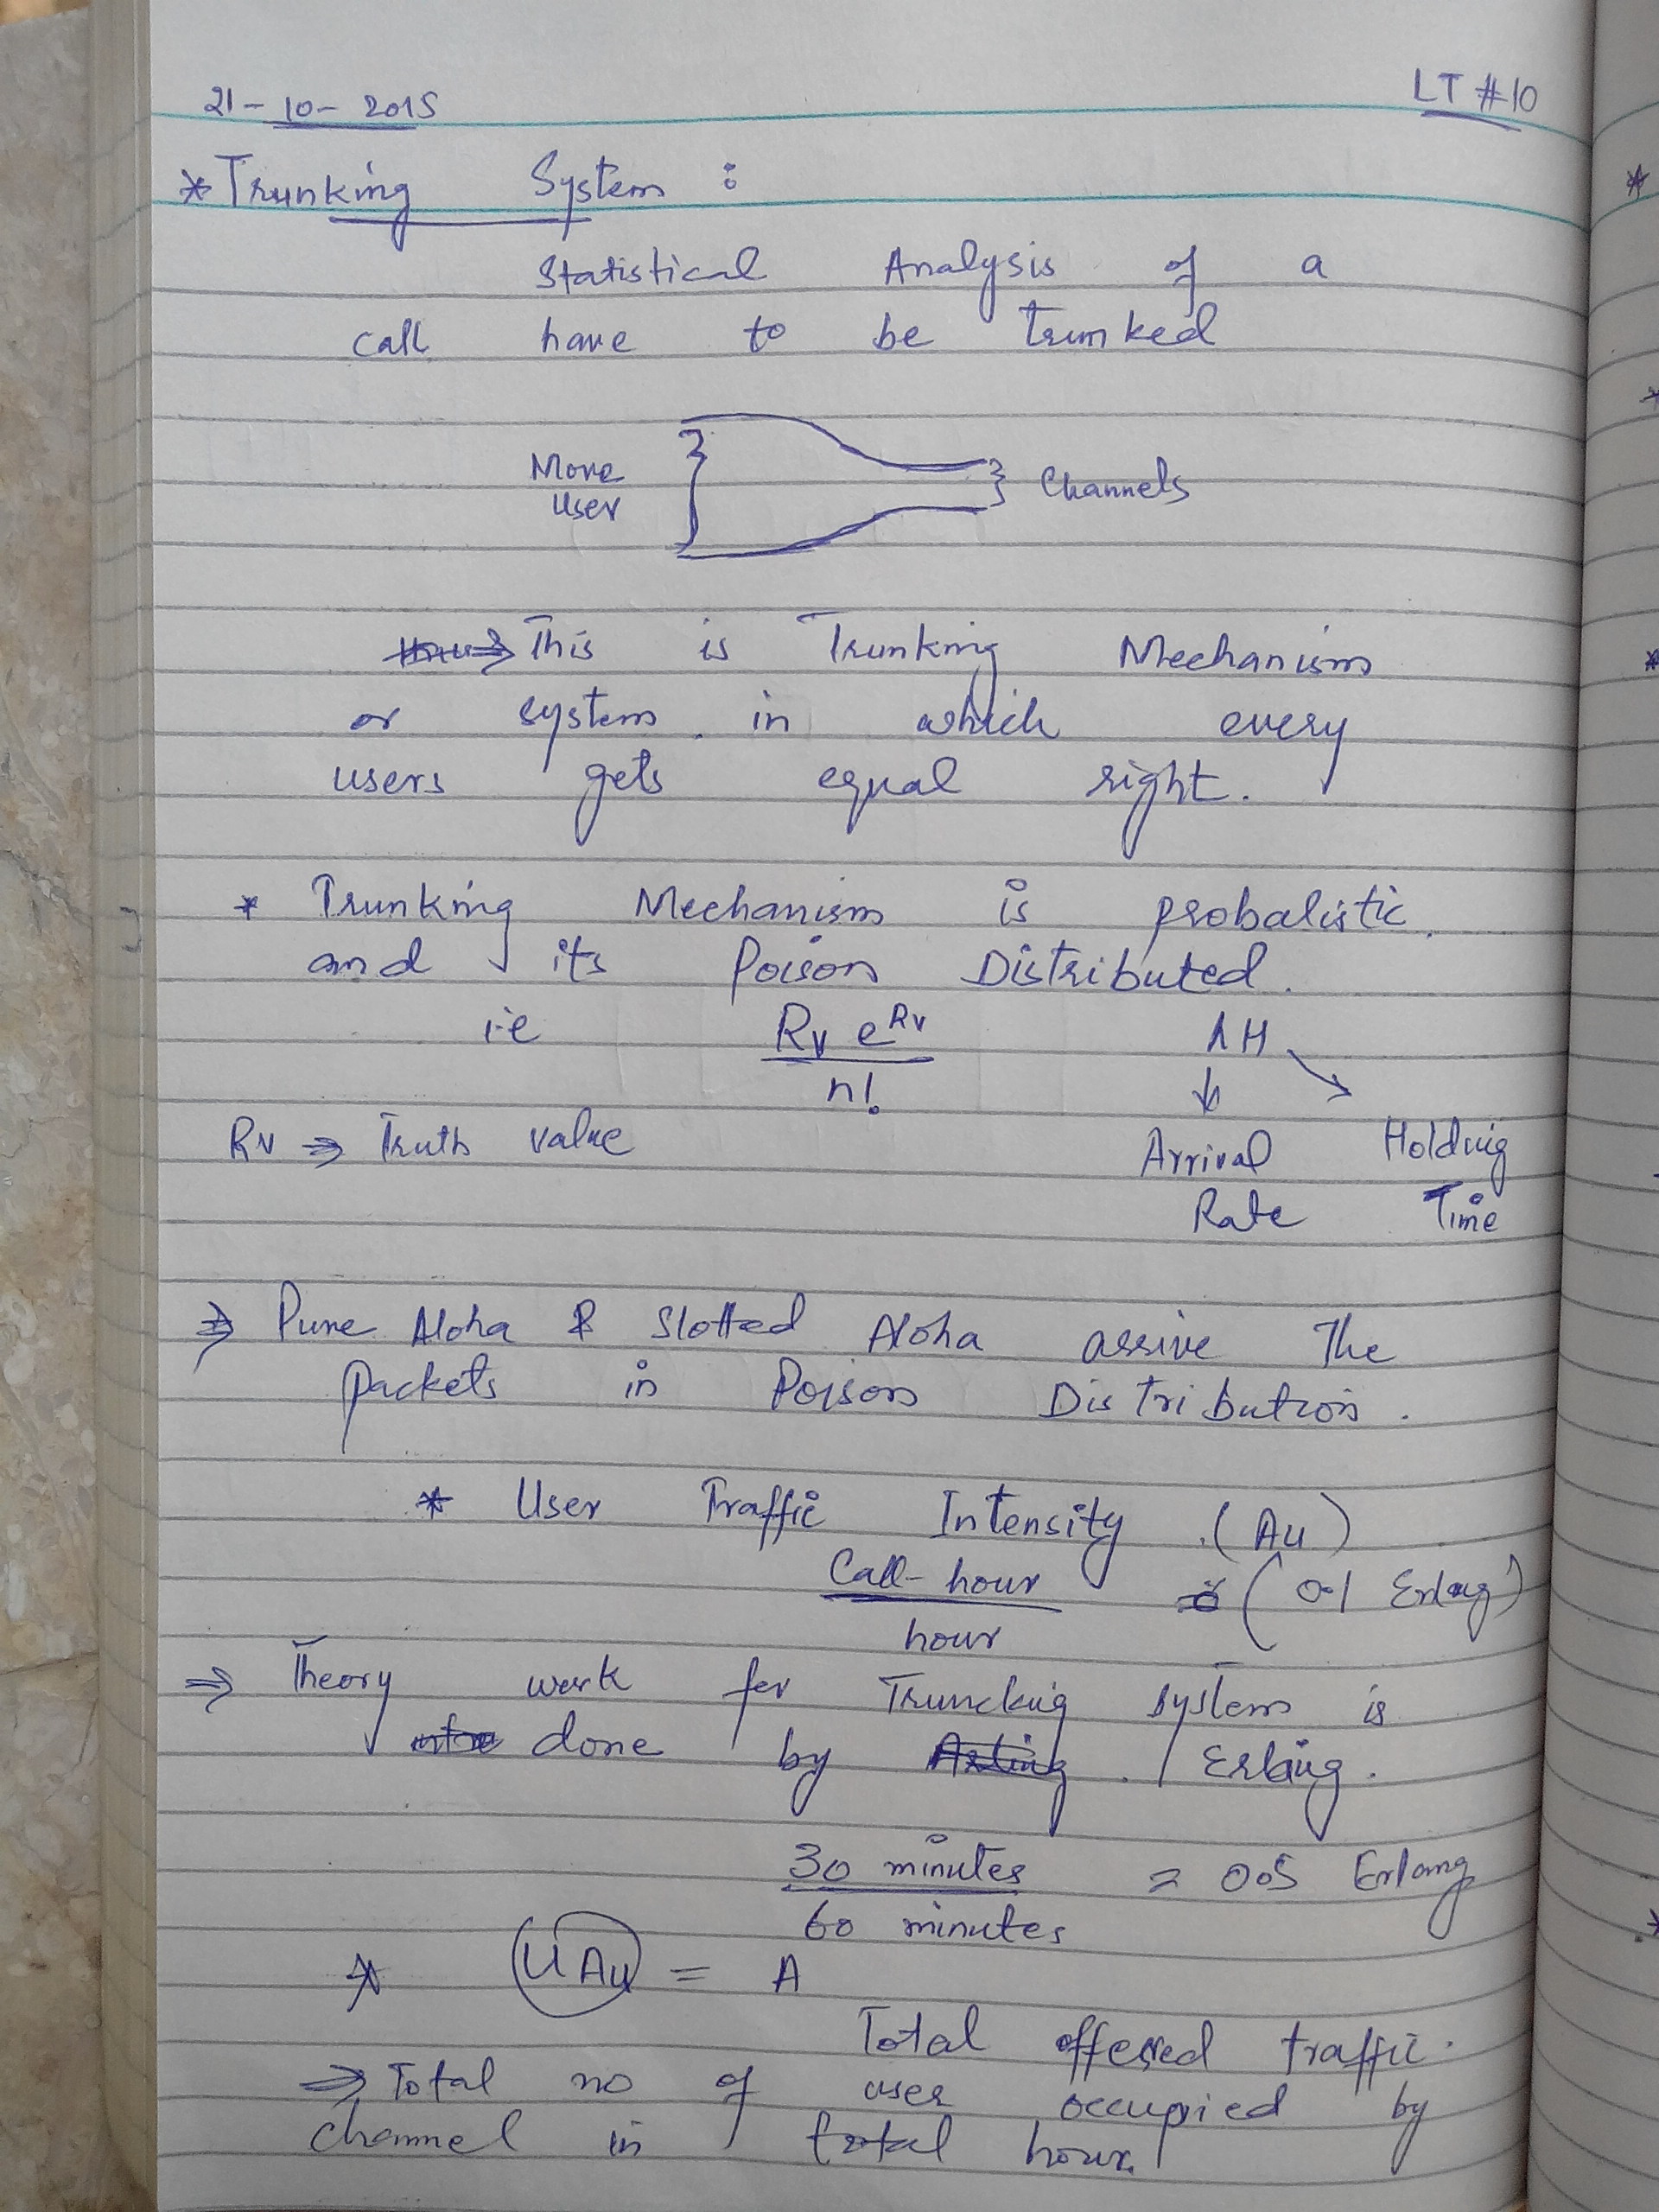 21-10-2015
LT #10
* Trunking System :
Statistical Analysis of a
call have to be trunked
More
User
Channels
This is Trunking Mechanism
or system in which every
users gets equal right.
* Trunking Mechanism is probalistic
and its Poison Distributed.
i.e Rv e^Rv / n! λH
Rv ⇒ Truth value
Arrival Holding
Rate Time
⇒ Pure Aloha & Slotted Aloha arrive The
packets in Poison Distribution.
* User Traffic Intensity (Au)
Call-hour / hour (0.1 Erlang)
⇒ Theory work for Truncking system is
done by Erlang.
30 minutes / 60 minutes = 0.5 Erlang
* UAu = A
Total offered traffic.
⇒ Total no of user occupied by
channel in total hour.